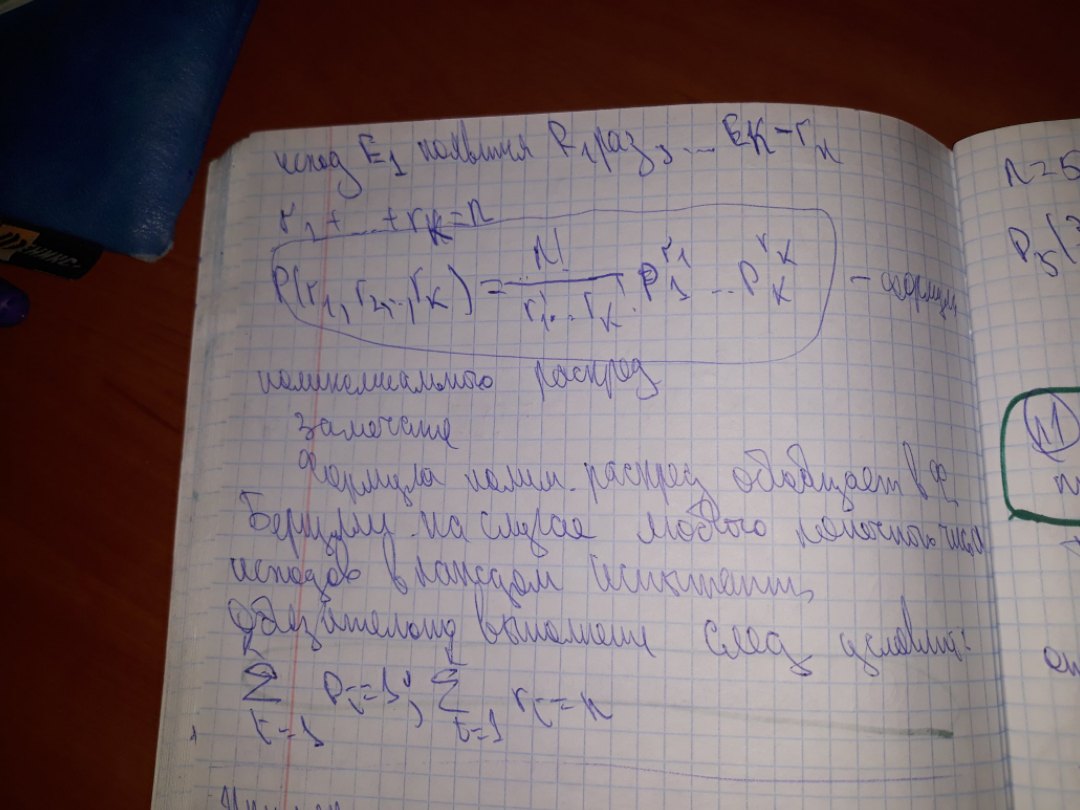 исход E1 появится R1 раз, ... EK - rn
r1 + ... + rK = n
P(r1, r2, ..., rK) = n! / r1! ... rK! P1^r1 ... PK^rK - формула
полиномиального распред
Замечание
Формула полин. распред обобщает в ф.
Бернулли на случае любого конечного числа
исходов в каждом испытании,
Обязательно выполнение след условий:
K K
Σ Pi = 1; Σ ri = n
i=1 i=1
n=5
P5(3
№1